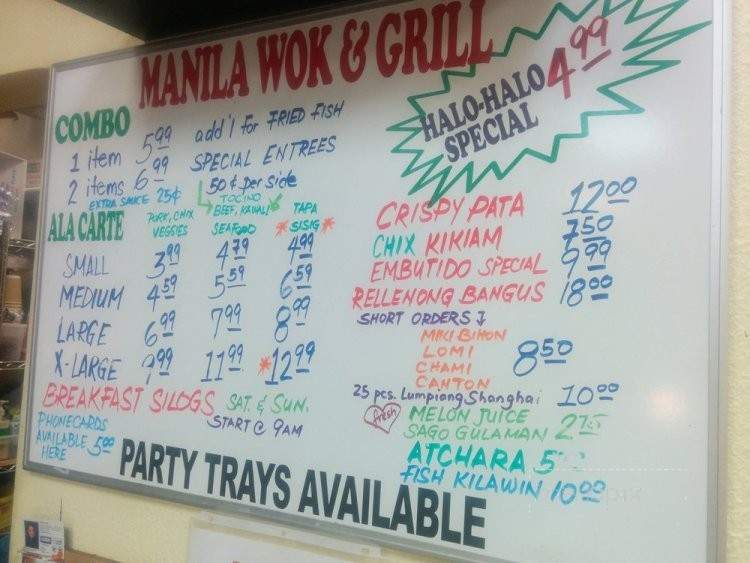 MANILA WOK & GRILL
HALO-HALO
SPECIAL 4.99
COMBO
1 item 5.99
2 items 6.99
EXTRA SAUCE 25¢
add'l for FRIED FISH
SPECIAL ENTREES
50¢ per side
ALA CARTE
PORK, CHX VEGGIES
TOCINO BEEF, KAWALI SEAFOOD
*TAPA SISIG*
SMALL 3.99 4.79 4.99
MEDIUM 4.59 5.59 6.59
LARGE 6.99 7.99 8.99
X-LARGE 9.99 11.99 *12.99
BREAKFAST SILOGS SAT. & SUN.
START @ 9AM
PHONECARDS
AVAILABLE 5.00
HERE
CRISPY PATA 12.00
CHIX KIKIAM 7.50
EMBUTIDO SPECIAL 9.99
RELLENONG BANGUS 18.00
SHORT ORDERS
MIKI BIHON
LOMI
CHAMI
CANTON
8.50
25 pcs. Lumpiang Shanghai 10.00
fresh MELON JUICE
SAGO GULAMAN
ATCHARA
FISH KILAWIN 10.00
PARTY TRAYS AVAILABLE